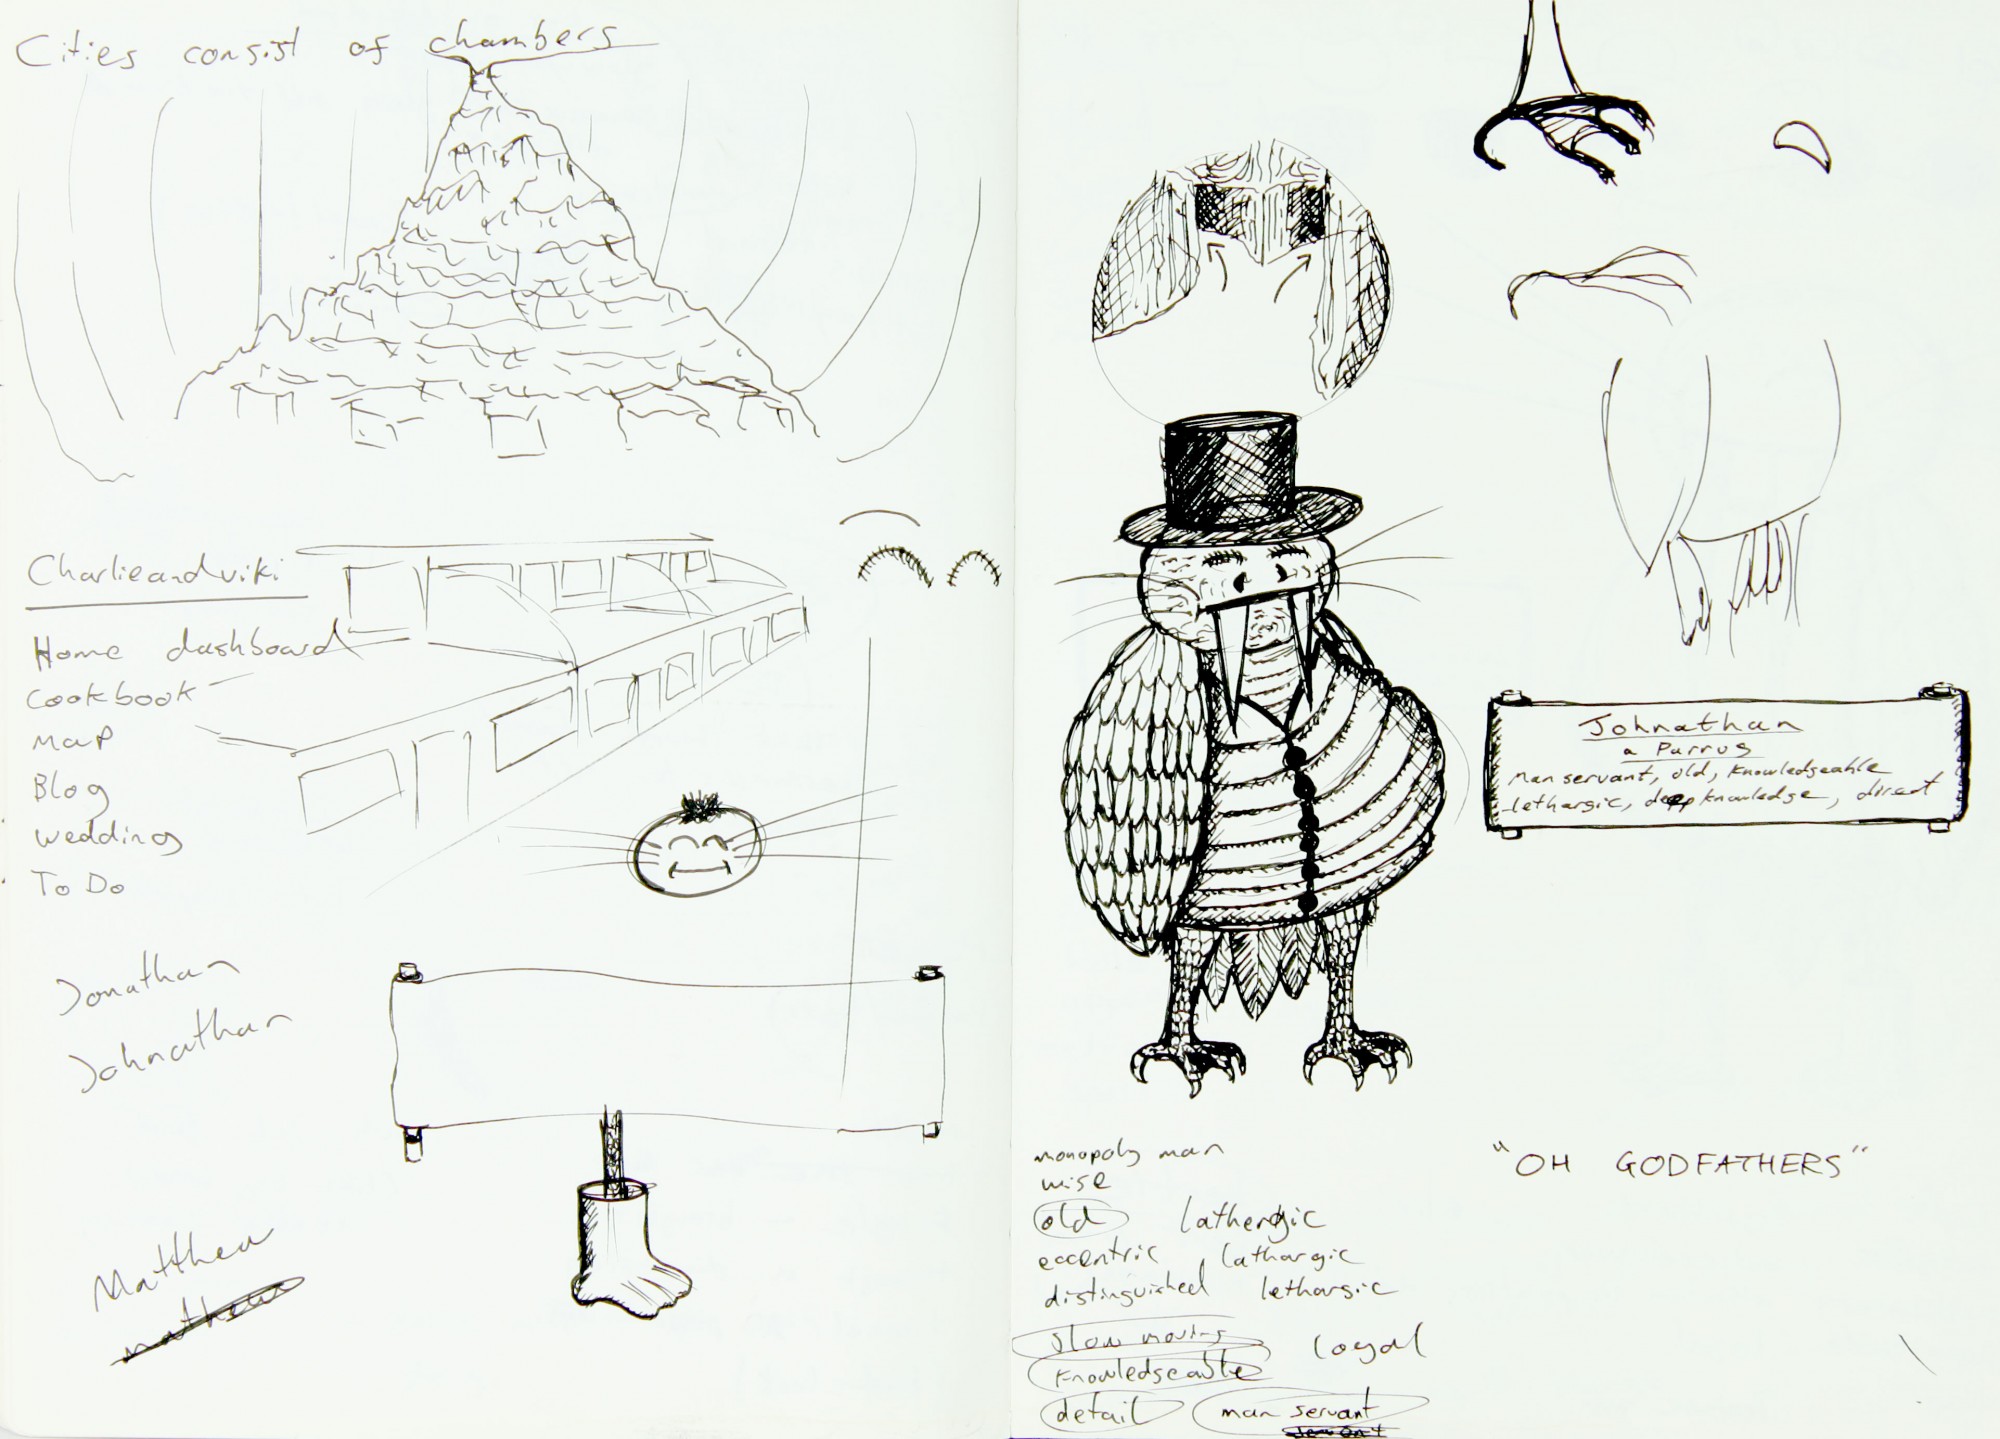 Cities consist of chambers
Charlieandviki
Home dashboard
Cookbook
Map
Blog
Wedding
To Do
Jonathan
Johnathan
Matthew
mathew
Johnathan
a Parrus
Man servant, old, Knowledgeable
lethargic, deep knowledge, direct
monopoly man
wise
old lathergic
eccentric lathargic
distinguished lethargic
slow moving loyal
Knowledgeable
detail man servant
"OH GODFATHERS"